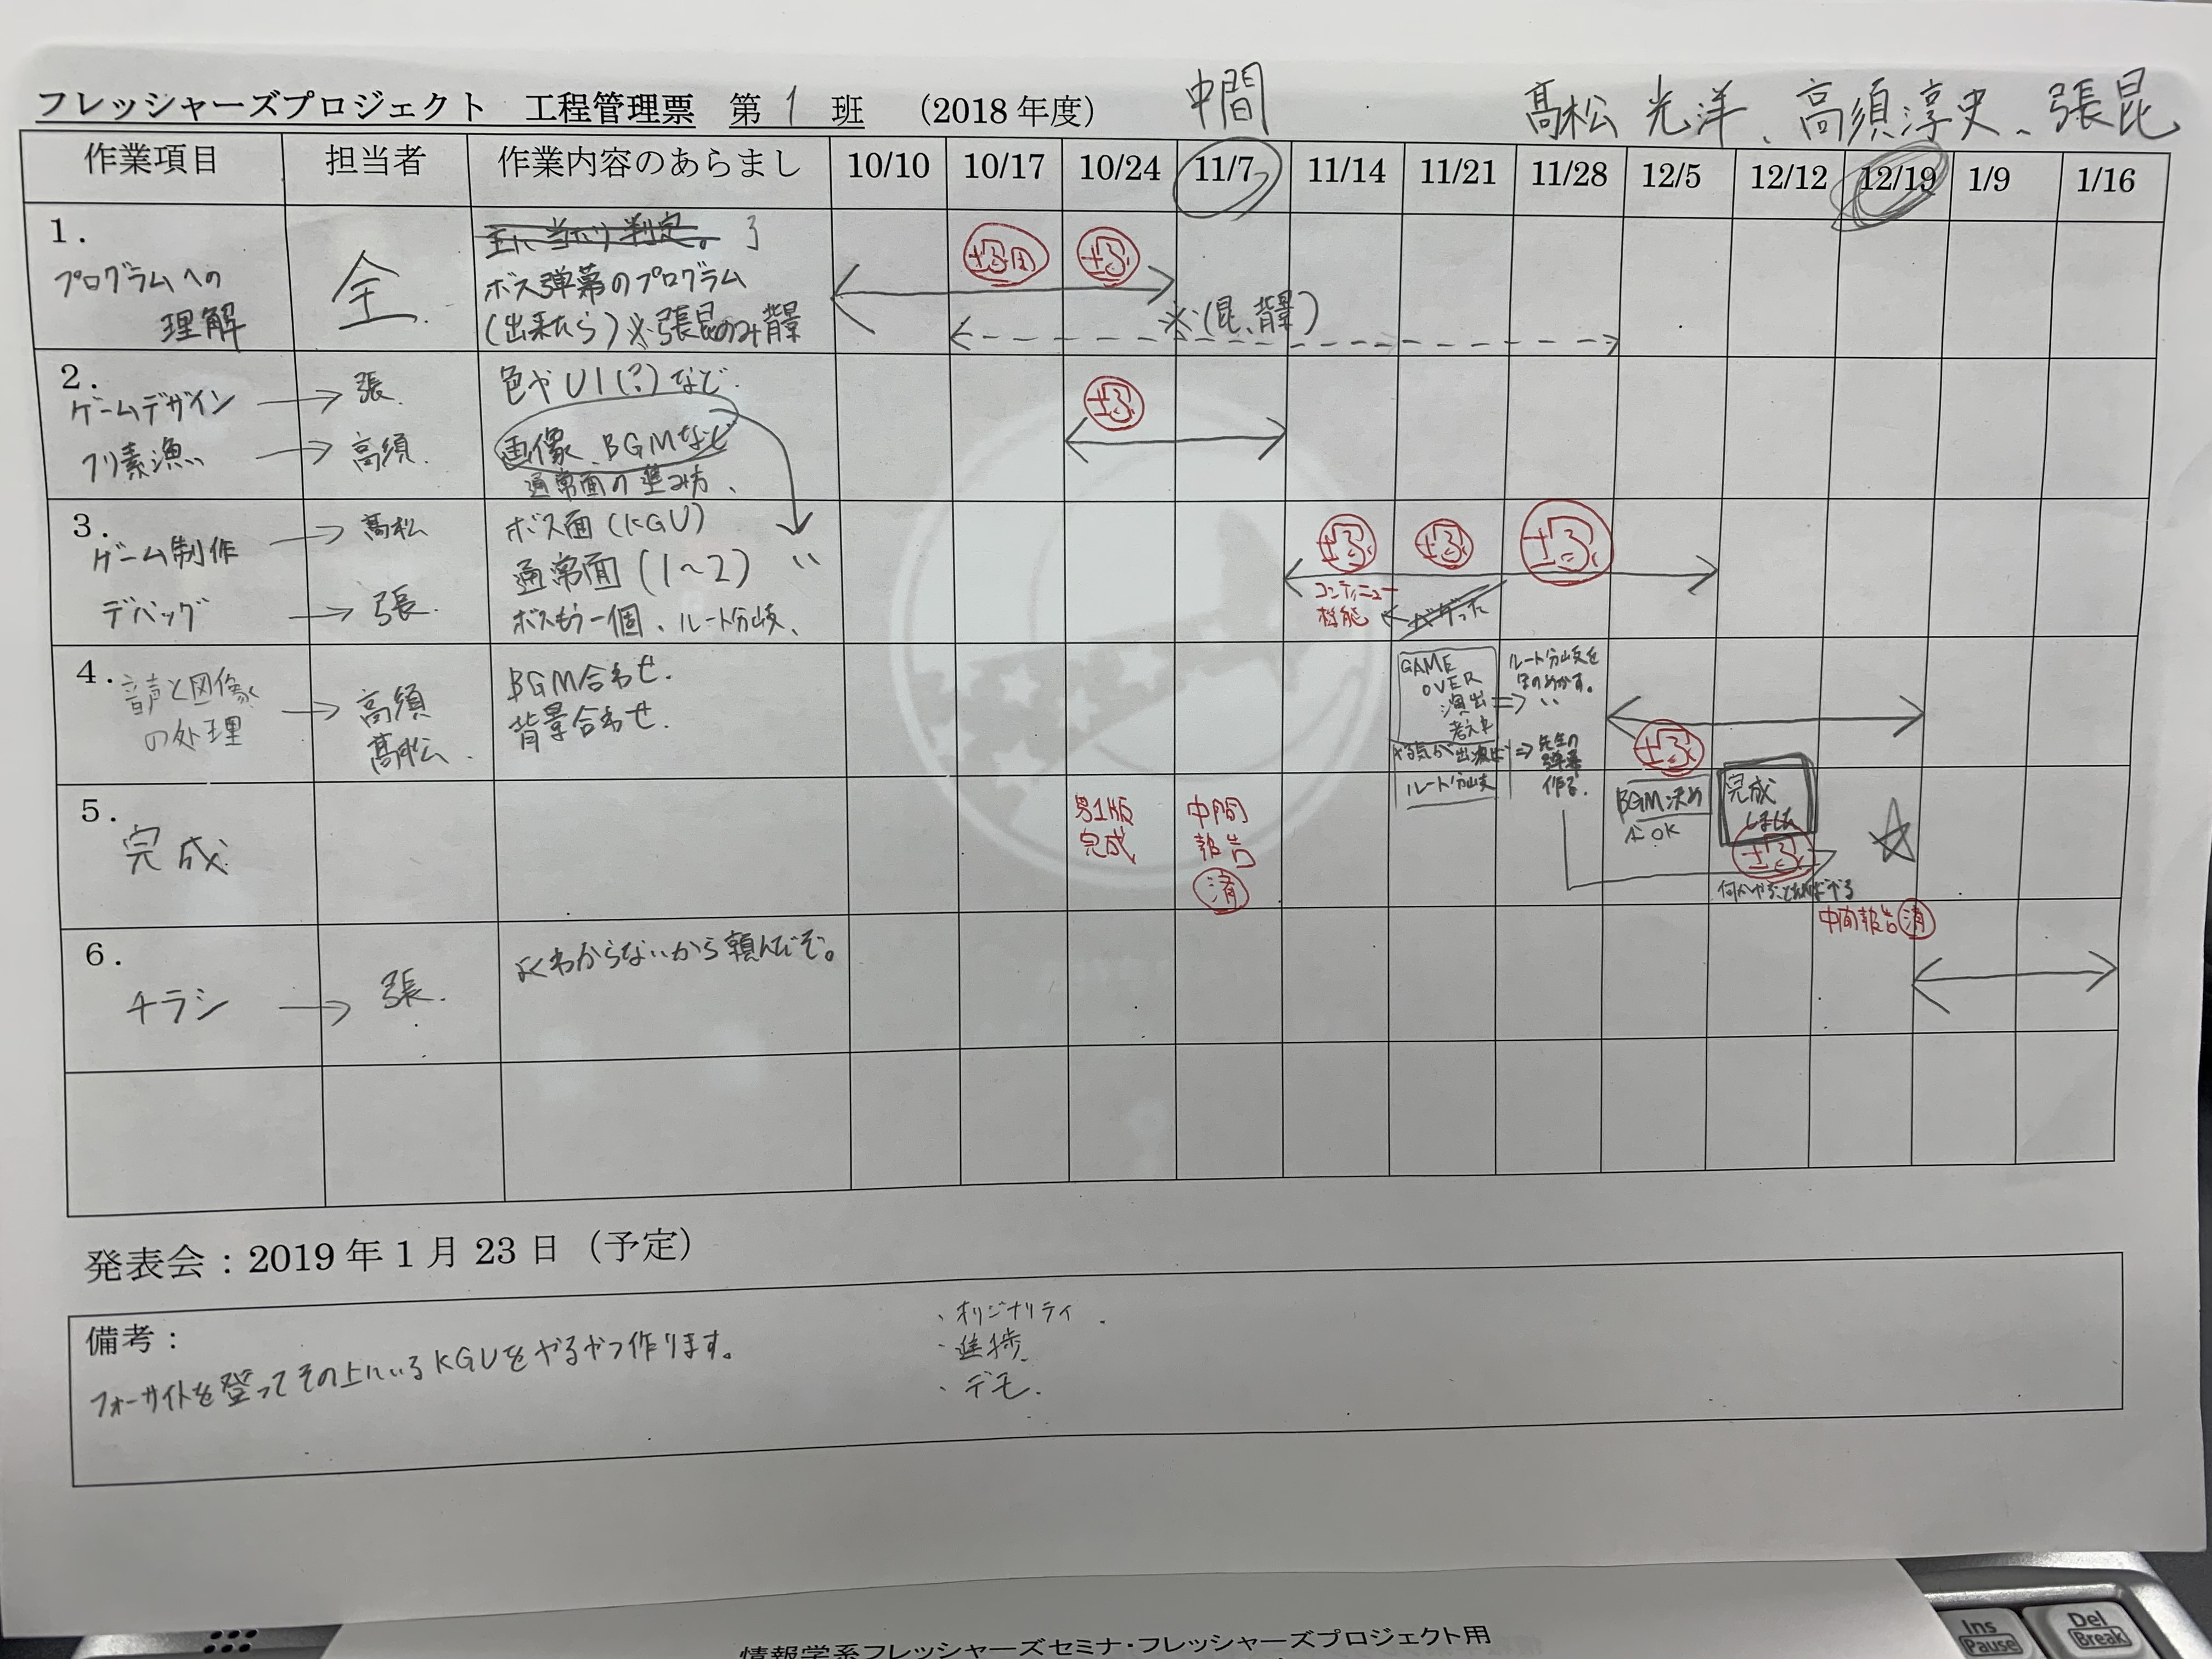 中間
髙松 光洋、高須淳史、張昆
フレッシャーズプロジェクト 工程管理票 第 1 班 (2018 年度)
作業項目 担当者 作業内容のあらまし 10/10 10/17 10/24 11/7 11/14 11/21 11/28 12/5 12/12 12/19 1/9 1/16
1.
プログラムへの
理解
全
主に当たり判定。
ボス弾幕のプログラム
(出来たら)※張昆のみ背景
※(昆、背景)
2.
ゲームデザイン → 張
フリ素漁 → 高須
色やUI(?)など
画像、BGMなど
通常面の進み方、
3.
ゲーム制作 → 髙松
デバッグ → 張
ボス面(KGU)
通常面(1~2)
ボスもう一個、ルート分岐、
コンティニュー
機能
バグった
4.
音声と図像
の処理
高須
髙松
BGM合わせ.
背景合わせ.
GAME
OVER
演出
考え中
ルート分岐
ルート分岐を
ほのめかす。
先生の
弾幕
作る.
5.
完成
第1版
完成
中間
報告
済
BGM決め
OK
完成
しました
中間報告 済
6.
チラシ → 張
よくわからないから頼んだぞ。
発表会:2019 年 1 月 23 日(予定)
備考:
フォーサイトを登ってその上にいるKGUをやるやつ作ります。
、オリジナリティ
・進捗
、デモ.
情報学系フレッシャーズセミナ・フレッシャーズプロジェクト用
Ins
Pause
Del
Break